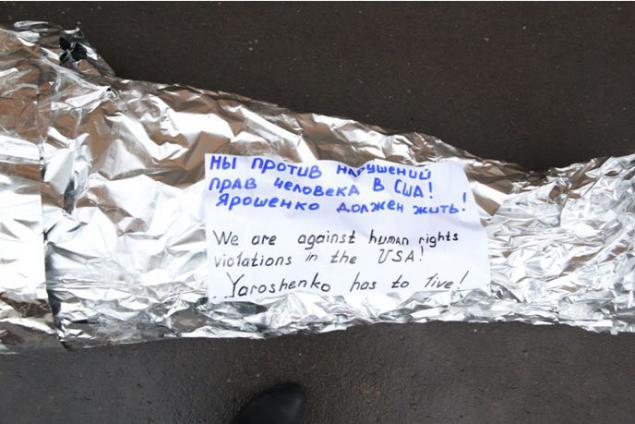 Мы против нарушений
прав человека в США!
Ярошенко должен жить!
We are against human rights
violations in the USA!
Yaroshenko has to live!